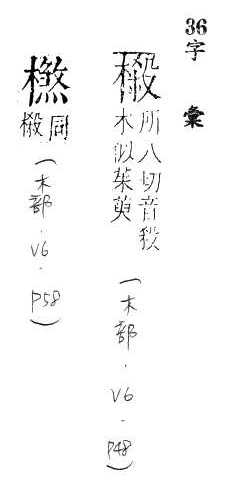 36字彙
榝 所八切音殺
木似茱萸 (木部.V6.P48)
同
榝 (木部.V6.P58)